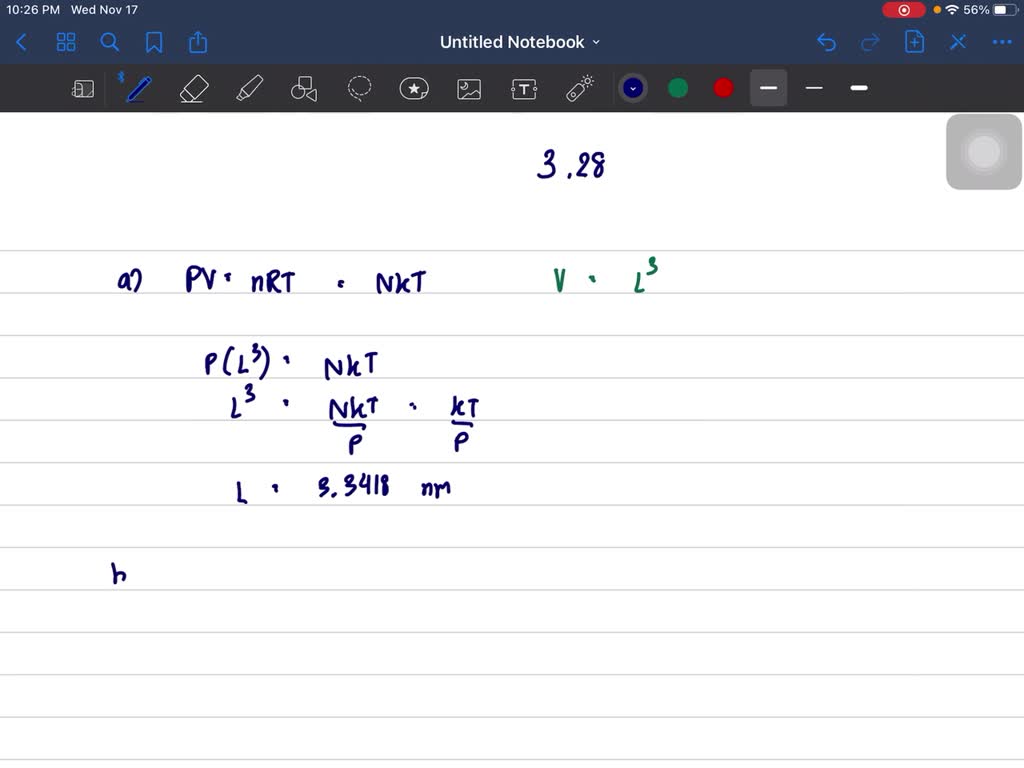 10:26 PM Wed Nov 17
56%
Untitled Notebook
T
3.28
a) PV = nRT = NkT
V = L³
P(L³) = NkT
L³ = NkT/P = kT/P
L = 3.3418 nm
b